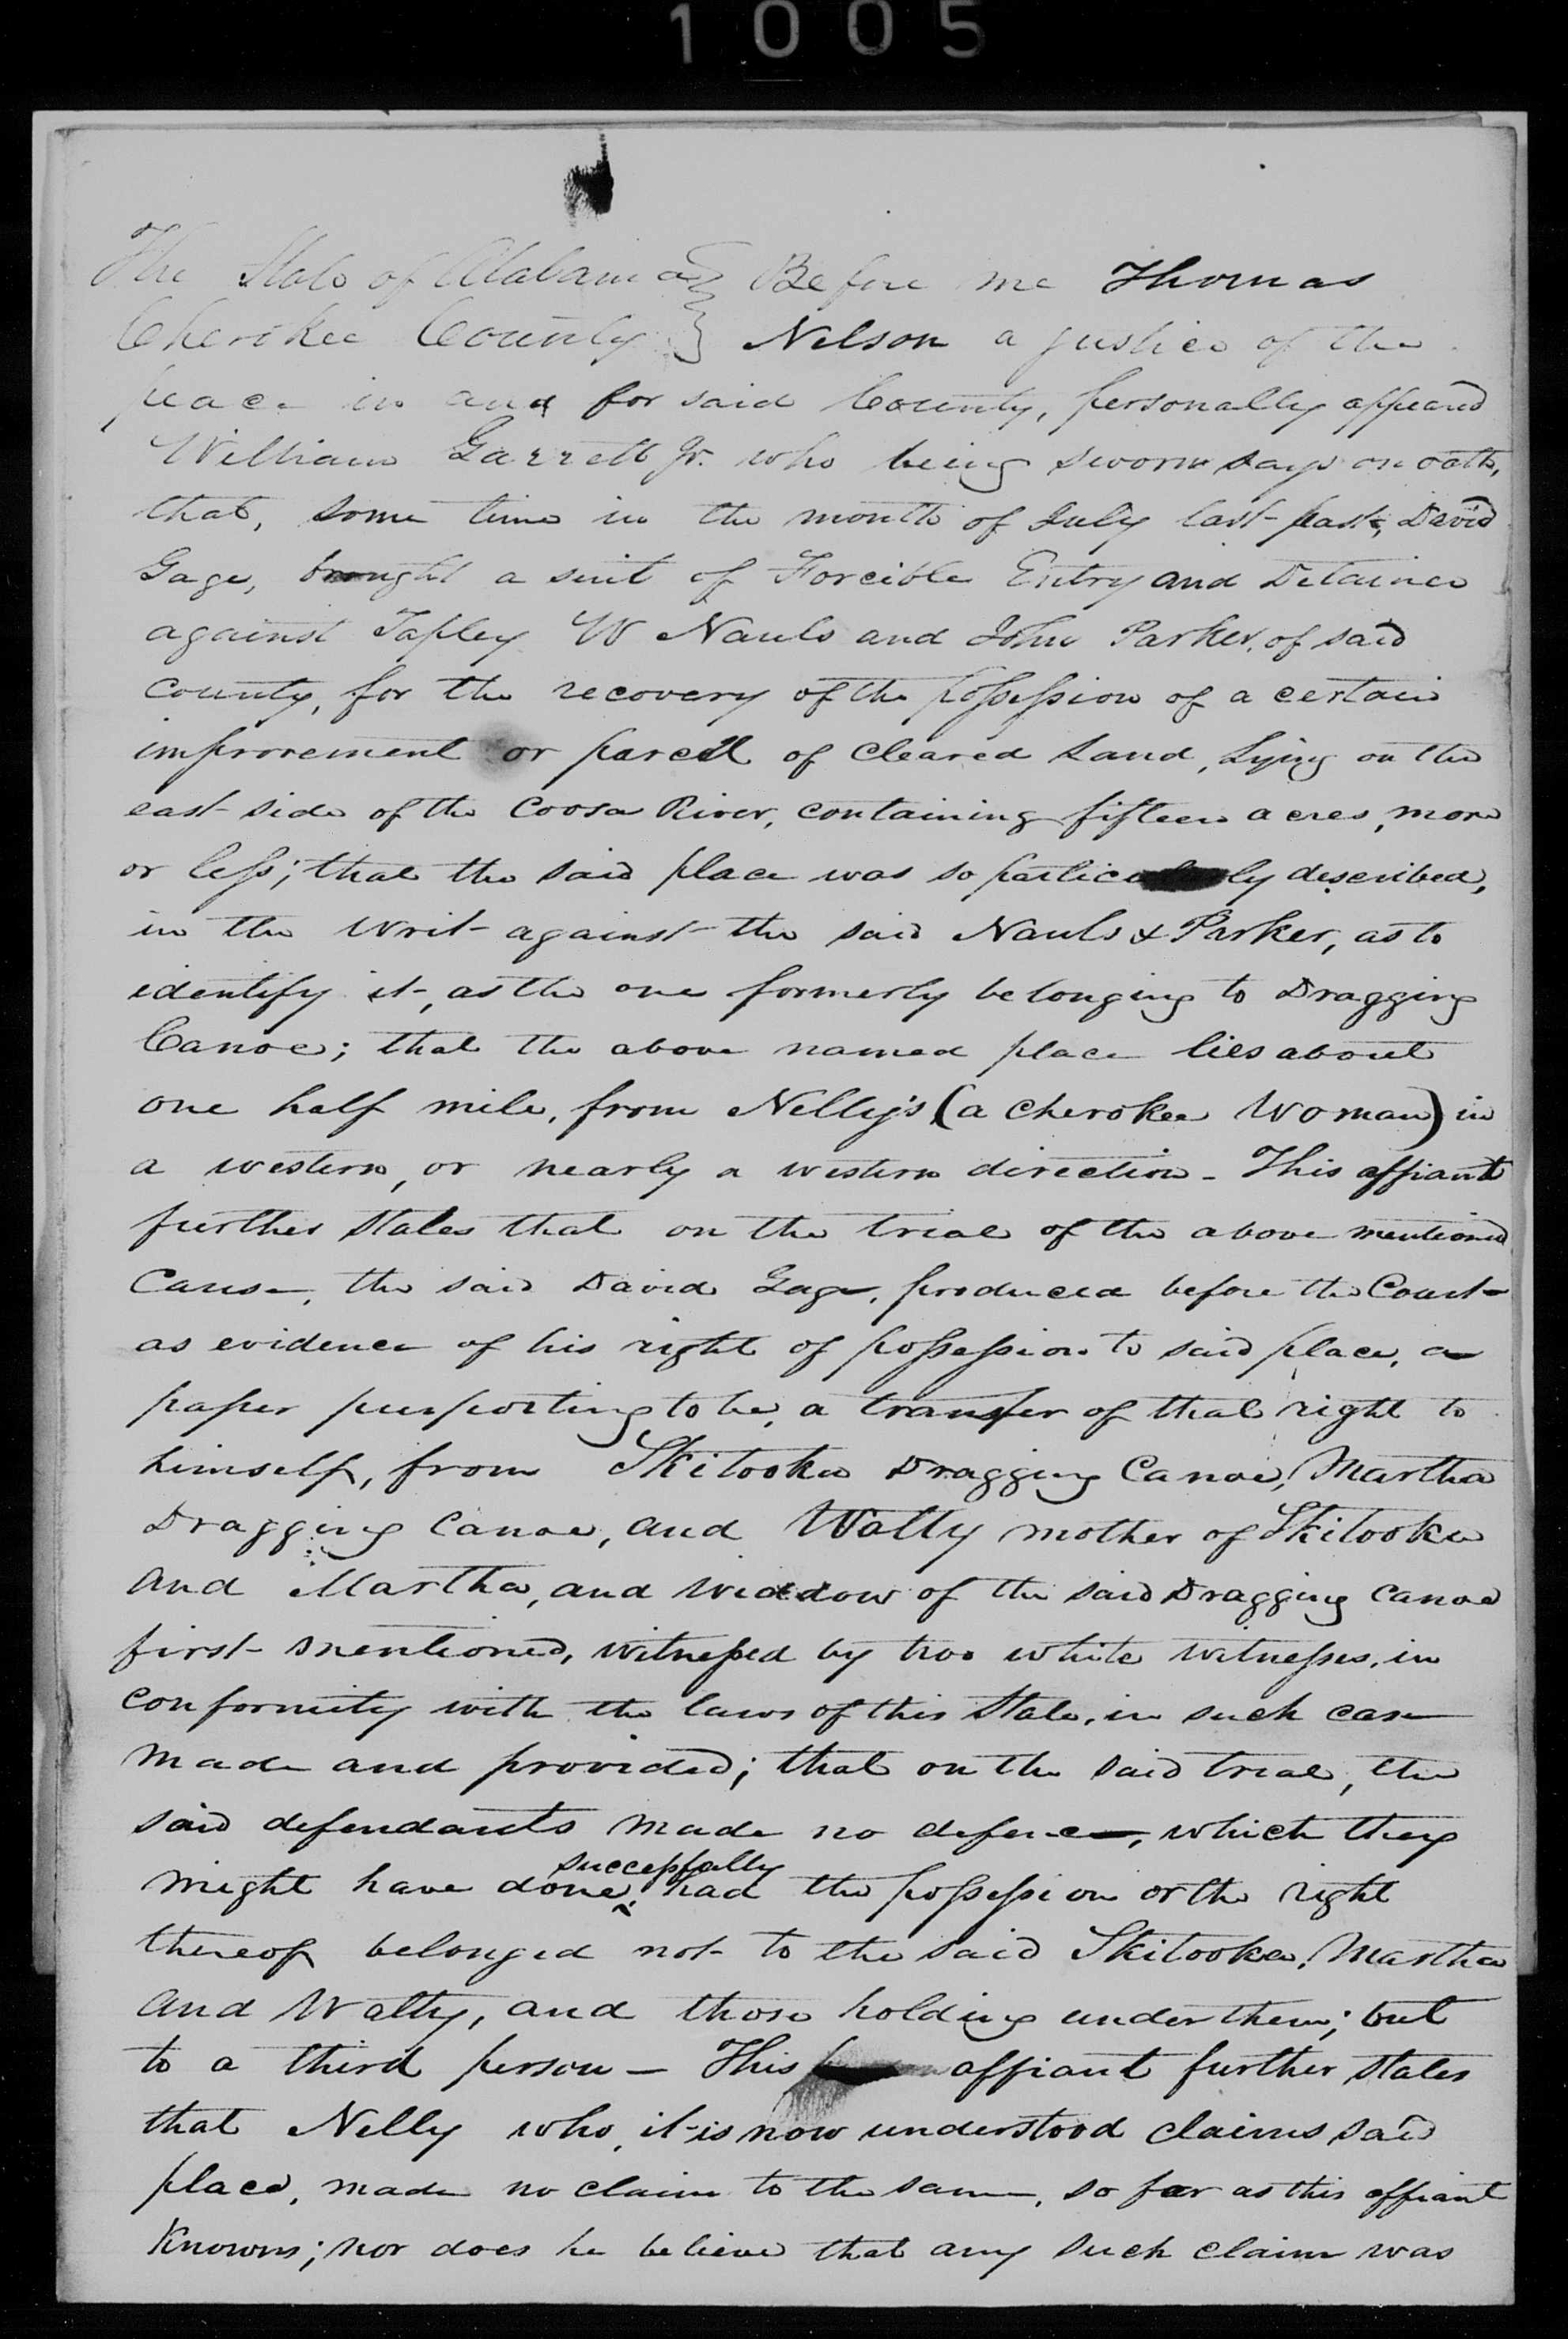 1005
The State of Alabama } Before me Thomas
Cherokee County } Nelson a justice of the
peace in and for said County, personally appeared
William Garrett Jr. who being sworn says on oath,
that, some time in the month of July last past, David
Gage, brought a suit of Forcible Entry and Detainer
against Tapley W Nauls and John Parker, of said
county, for the recovery of the possession of a certain
improvement or parcell of cleared Land, Lying on the
east side of the Coosa River, containing fifteen acres, more
or less; that the said place was so particularly described,
in the writ against the said Nauls & Parker, as to
identify it, as the one formerly belonging to Dragging
Canoe; that the above named place lies about
one half mile, from Nelly's (a Cherokee Woman) in
a western, or nearly a western direction - This affiant
further States that on the trial of the above mentioned
Cause, the said David Gage, produced before the Court
as evidence of his right of possession to said place, a
paper purporting to be, a transfer of that right to
himself, from Skitooka Dragging Canoe, Martha
Dragging Canoe, and Watty mother of Skitooka
and Martha, and widdow of the said Dragging Canoe
first mentioned, witnessed by two white witnesses, in
conformity with the laws of this State, in such case
made and provided; that on the said trial, the
said defendants made no defence, which they
might have done successfully, had the possession or the right
thereof belonged not to the said Skitooka, Martha
and Watty, and those holding under them; but
to a third person - This affiant further states
that Nelly who, it is now understood claims said
place, made no claim to the same, so far as this affiant
Knowns; nor does he believe that any such claim was